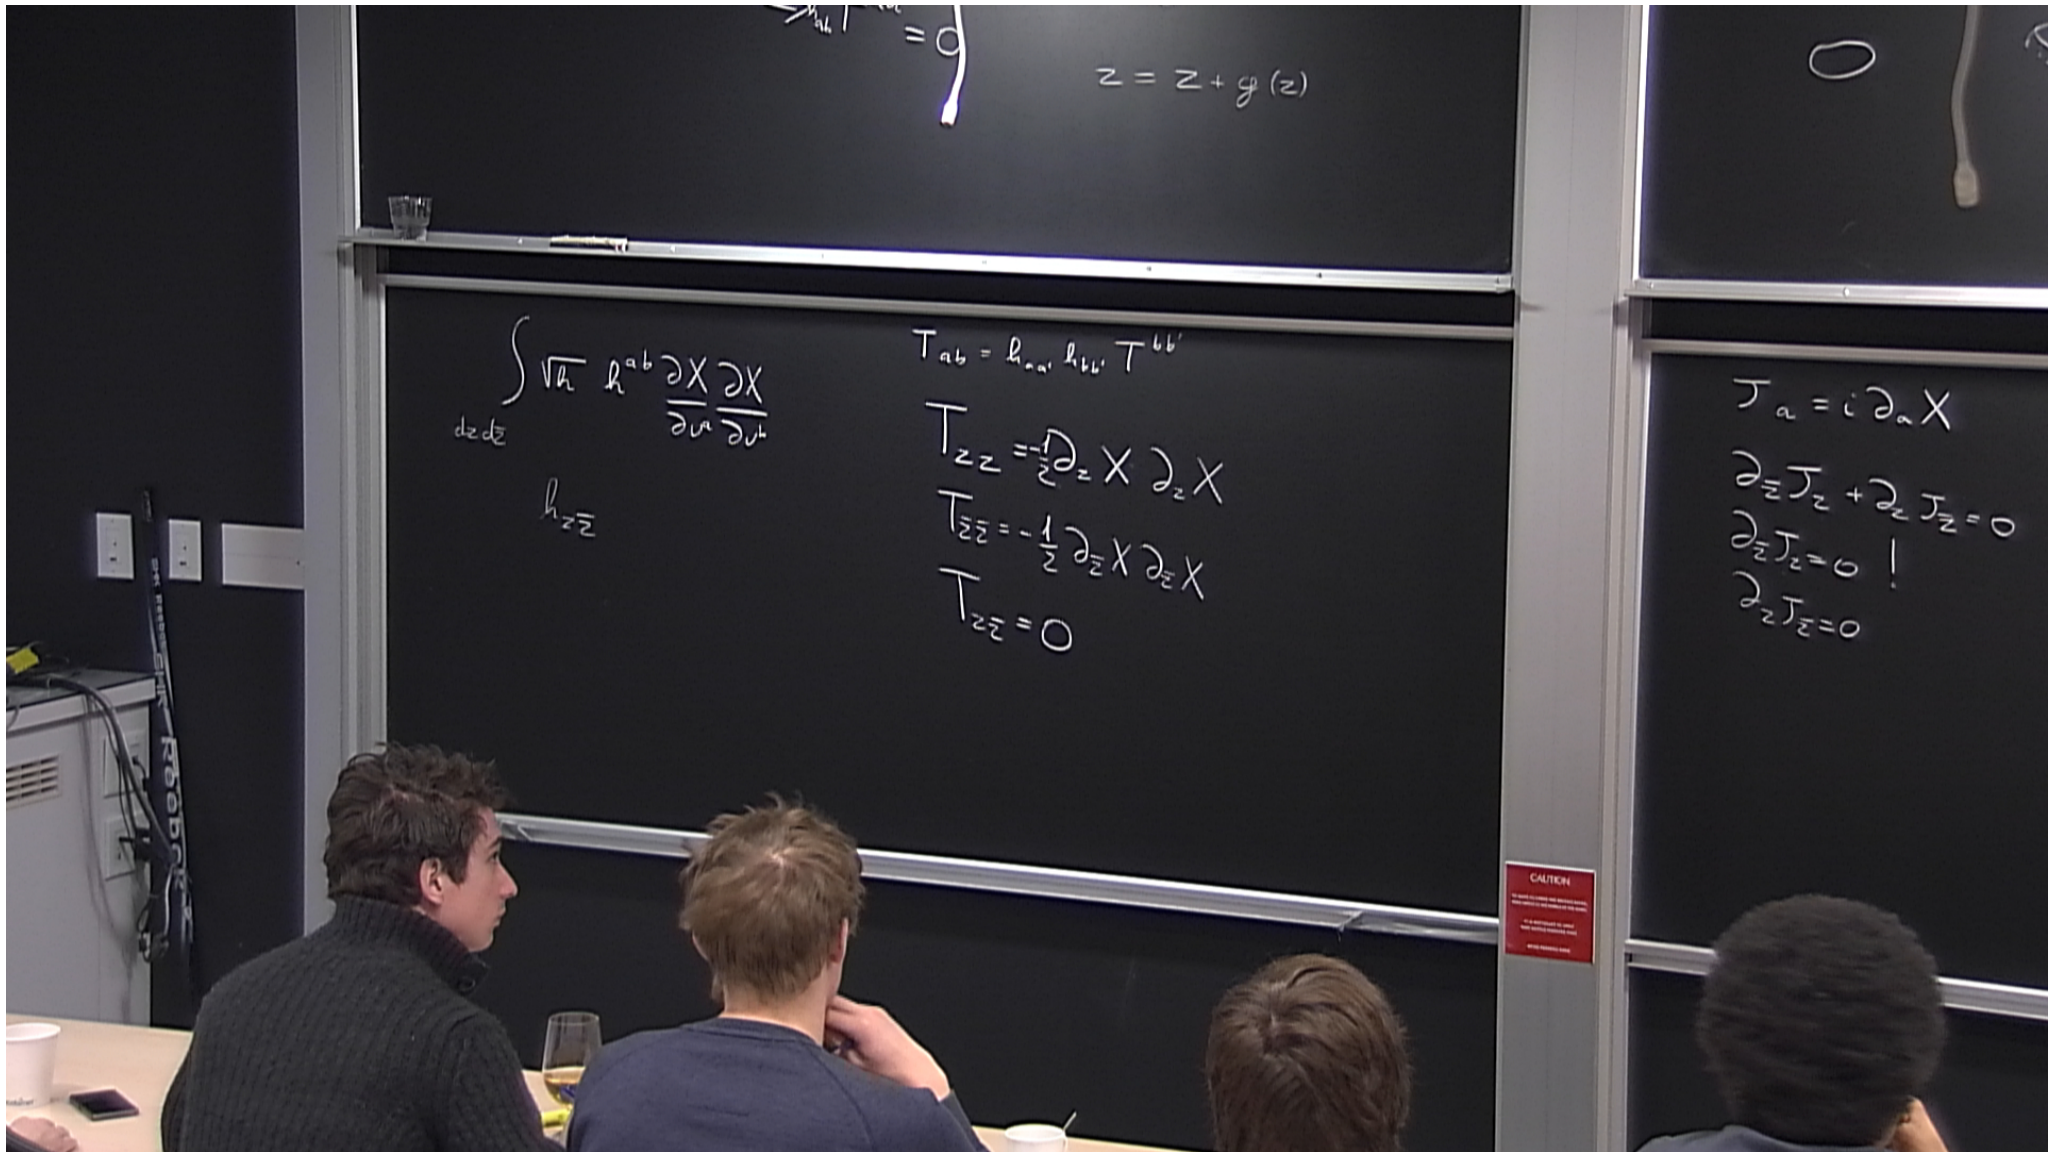 = 0
z = z + g(z)
∫ √h h^{ab} ∂X/∂v^a ∂X/∂v^b
dz dz̄
h_{zz̄}
T_{ab} = h_{aa'} h_{bb'} T^{bb'}
T_{zz} = -1/2 ∂_z X ∂_z X
T_{z̄z̄} = -1/2 ∂_z̄ X ∂_z̄ X
T_{zz̄} = 0
J_a = i ∂_a X
∂_z̄ J_z + ∂_z J_z̄ = 0
∂_z̄ J_z = 0 !
∂_z J_z̄ = 0
CAUTION
Reebok